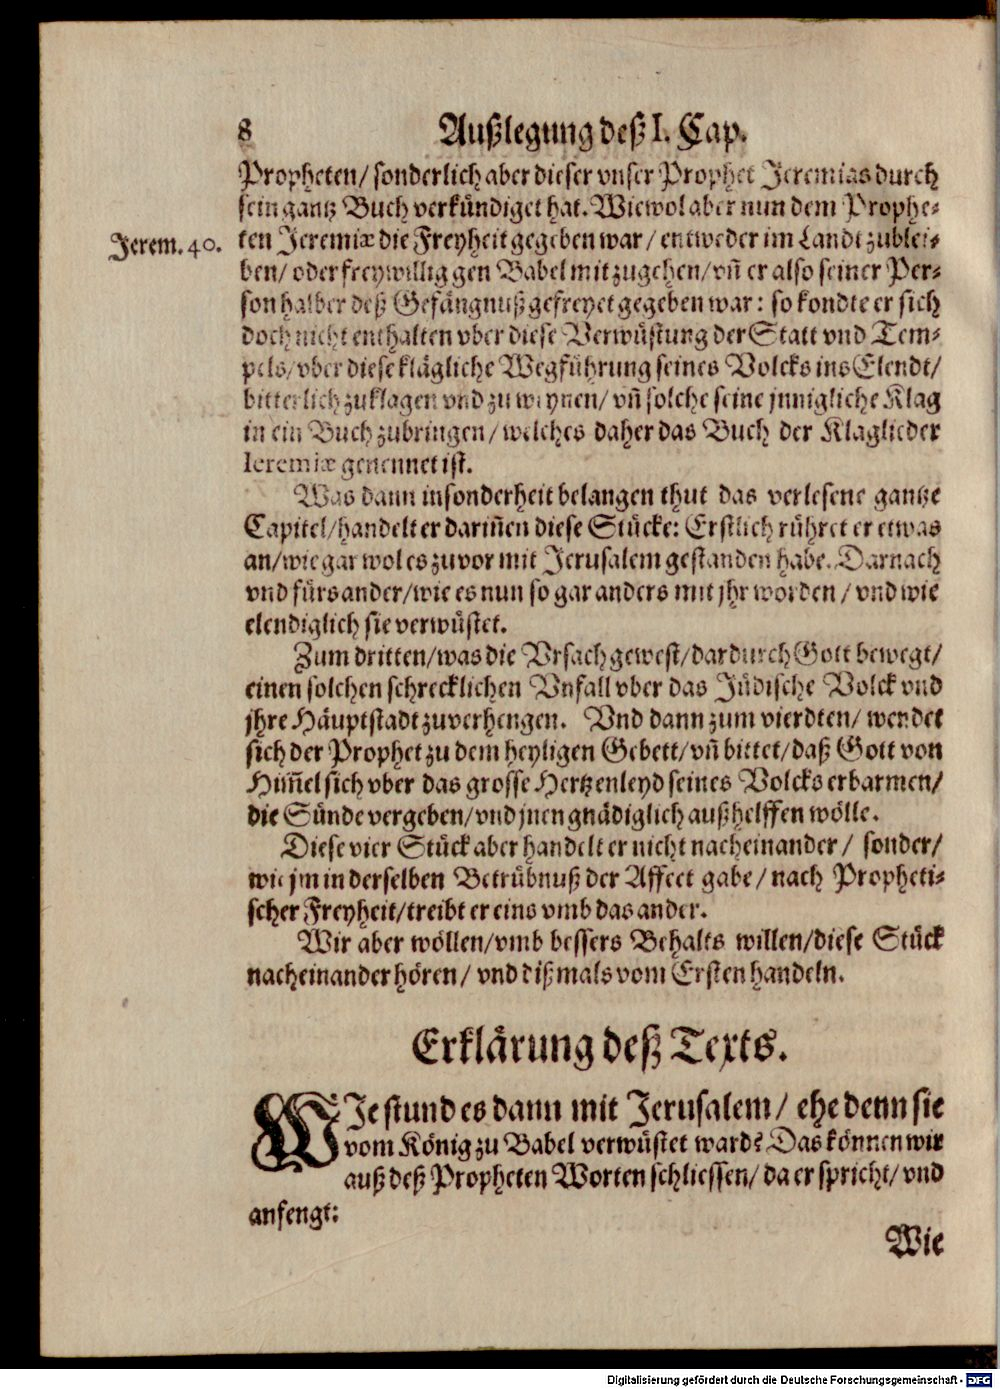 8 Außlegung deß I. Cap.
Propheten/ sonderlich aber dieser vnser Prophet Jeremias durch
sein gantz Buch verkündiget hat. Wiewol aber nun dem Prophe-
Jerem. 40.
ten Jeremiæ die Freyheit gegeben war/ entweder im Landt zublei-
ben/ oder freywillig gen Babel mitzugehen/ vñ er also seiner Per-
son halber deß Gefängnuß gefreyet gegeben war: so kondte er sich
doch nicht enthalten vber diese Verwüstung der Statt vnd Tem-
pels/ vber diese klägliche Wegführung seines Volcks ins Elendt/
bitterlich zuklagen vnd zu weynen/ vñ solche seine jnnigliche Klag
in ein Buch zubringen/ welches daher das Buch der Klaglieder
Ieremiæ genennet ist.
Was dann insonderheit belangen thut das verlesene gantze
Capitel/ handelt er dariñen diese Stücke: Erstlich rühret er etwas
an/ wie gar wol es zuvor mit Jerusalem gestanden habe. Darnach
vnd fürs ander/ wie es nun so gar anders mit jhr worden/ vnd wie
elendiglich sie verwüstet.
Zum dritten/ was die Vrsach gewest/ dardurch Gott bewegt/
einen solchen schrecklichen Vnfall vber das Jüdische Volck vnd
jhre Häuptstadt zuverhengen. Vnd dann zum vierdten/ wendet
sich der Prophet zu dem heyligen Gebett/ vñ bittet/ daß Gott von
Him̃el sich vber das grosse Hertzenleyd seines Volcks erbarmen/
die Sünde vergeben/ vnd jnen gnädiglich außhelffen wölle.
Diese vier Stück aber handelt er nicht nacheinander/ sonder/
wie jm in derselben Betrübnuß der Affect gabe/ nach Propheti-
scher Freyheit/ treibt er eins vmb das ander.
Wir aber wöllen/ vmb bessers Behalts willen/ diese Stück
nacheinander hören/ vnd dißmals vom Ersten handeln.
Erklärung deß Texts.
WJe stund es dann mit Jerusalem/ ehe denn sie
vom König zu Babel verwüstet ward? Das können wir
auß deß Propheten Worten schliessen/ da er spricht/ vnd
anfengt:
Wie
Digitalisierung gefördert durch die Deutsche Forschungsgemeinschaft - DFG